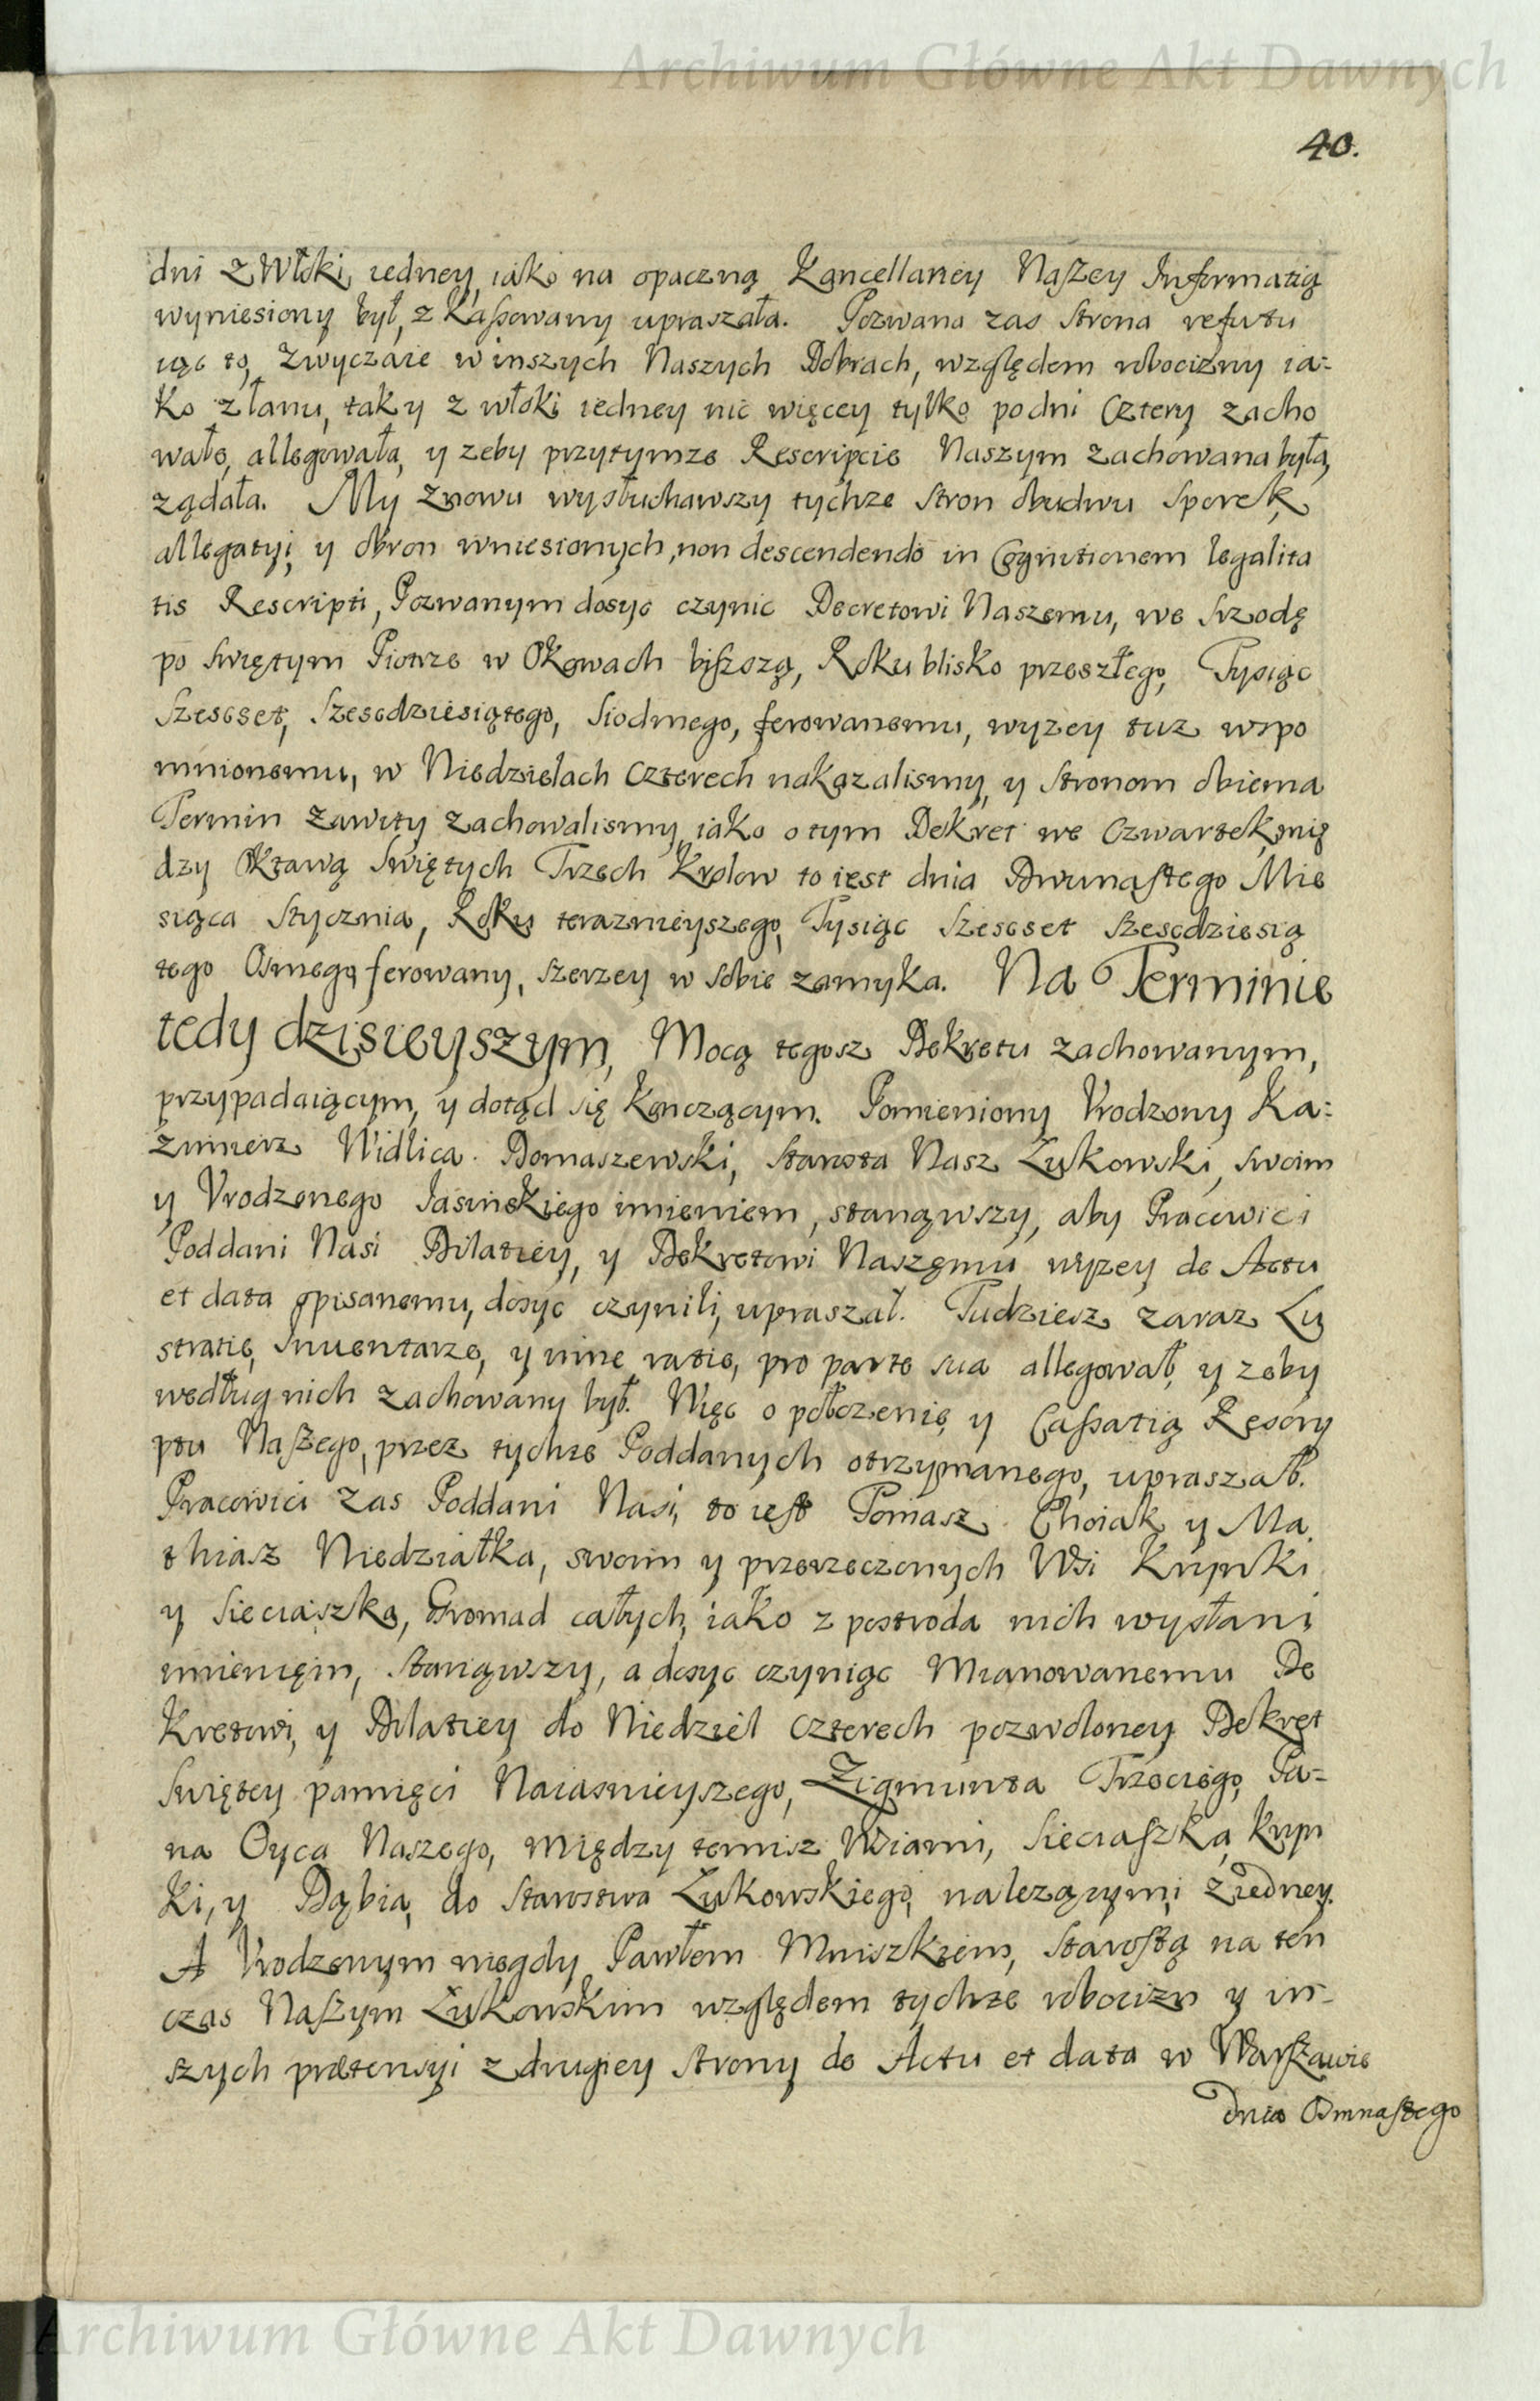 Archiwum Główne Akt Dawnych
40.
dni z Włoki iedney, iako na opaczną Kancellariey Naszey Informatią
wyniesiony był, z kassowany upraszała. Pozwana zas Strona refutu
iąc to, zwyczaie w inszych Naszych Dobrach, względem robocizny ia-
ko z łanu, tak y z włoki iedney nic więcey tylko po dni Cztery zacho
wałe, allegowała, y zeby przytymze Rescripcie Naszym zachowana była,
ządała. My znowu wysłuchawszy tychze Stron obudwu Sporek,
allegatyi, y obron wniesionych, non descendendo in Cognitionem legalita
tis Rescripti, Pozwanym dosyc czynic Decretowi Naszemu, we Srzodę
po Swiętym Piotrze w Okowach bliszą, Roku blisko przeszłego, Tysiąc
Szescset, Szescdziesiątego, Siodmego, ferowanemu, wyzey tuz wspo
mnionemu, w Niedzielach Czterech nakazalismy, y Stronom obiema
Termin zawity zachowalismy, iako o tym Dekret we Czwartek, mię
dzy Oktawą Swiętych Trzech Krolow to iest dnia Dwunastego Mie
siąca Stycznia, Roku teraznieyszego, Tysiąc Szescset Szescdziesią
tego Osmego ferowany, szerzey w sobie zamyka. Na Terminie
tedy dzisieyszym, Mocą tegosz Dekretu zachowanym,
przypadaiącym, y dotąd się konczącym. Pomieniony Vrodzony Ka-
zimierz Widlica Domaszewski, Starosta Nasz Łukowski, swoim
y Vrodzonego Jasinskiego imieniem, stanąwszy, aby Pracowici
Poddani Nasi Dilatiey, y Dekretowi Naszemu wyzey de Actu
et data opisanemu, dosyc czynili, upraszał. Tudziesz zaraz Lu
stratie, Inuentarze, y inne ratie, pro parte sua allegował, y zeby
według nich zachowany był. Więc o położenie y Cassatią Rescry
ptu Naszego, przez tychze Poddanych otrzymanego, upraszał.
Pracowici zas Poddani Nasi, to iest Tomasz Choiak y Ma
thiasz Niedziałka, swoim y przerzeczonych Wsi Krynki
y Sieciaszka, Gromad całych, iako z posroda nich wysłani
imieniem, stanąwszy, a dosyc czyniąc Mianowanemu De
kretowi, y Dilatiey do Niedziel Czterech pozwoloney Dekret
Swiętey pamięci Naiasnieyszego, Zigmunta Trzeciego, Pa-
na Oyca Naszego, między temisz Wsiami, Sieciaszką, Kryn
ki, y Dąbią, do Starostwa Łukowskiego, nalezącymi z iedney.
A Vrodzonym niegdy Pawłem Mniszkiem, Starostą na ten
czas Naszym Łukowskim względem tychze robocizn y in-
szych prætensyi z drugiey strony de Actu et data w Warszawie
dnia Osmnastego
Archiwum Główne Akt Dawnych